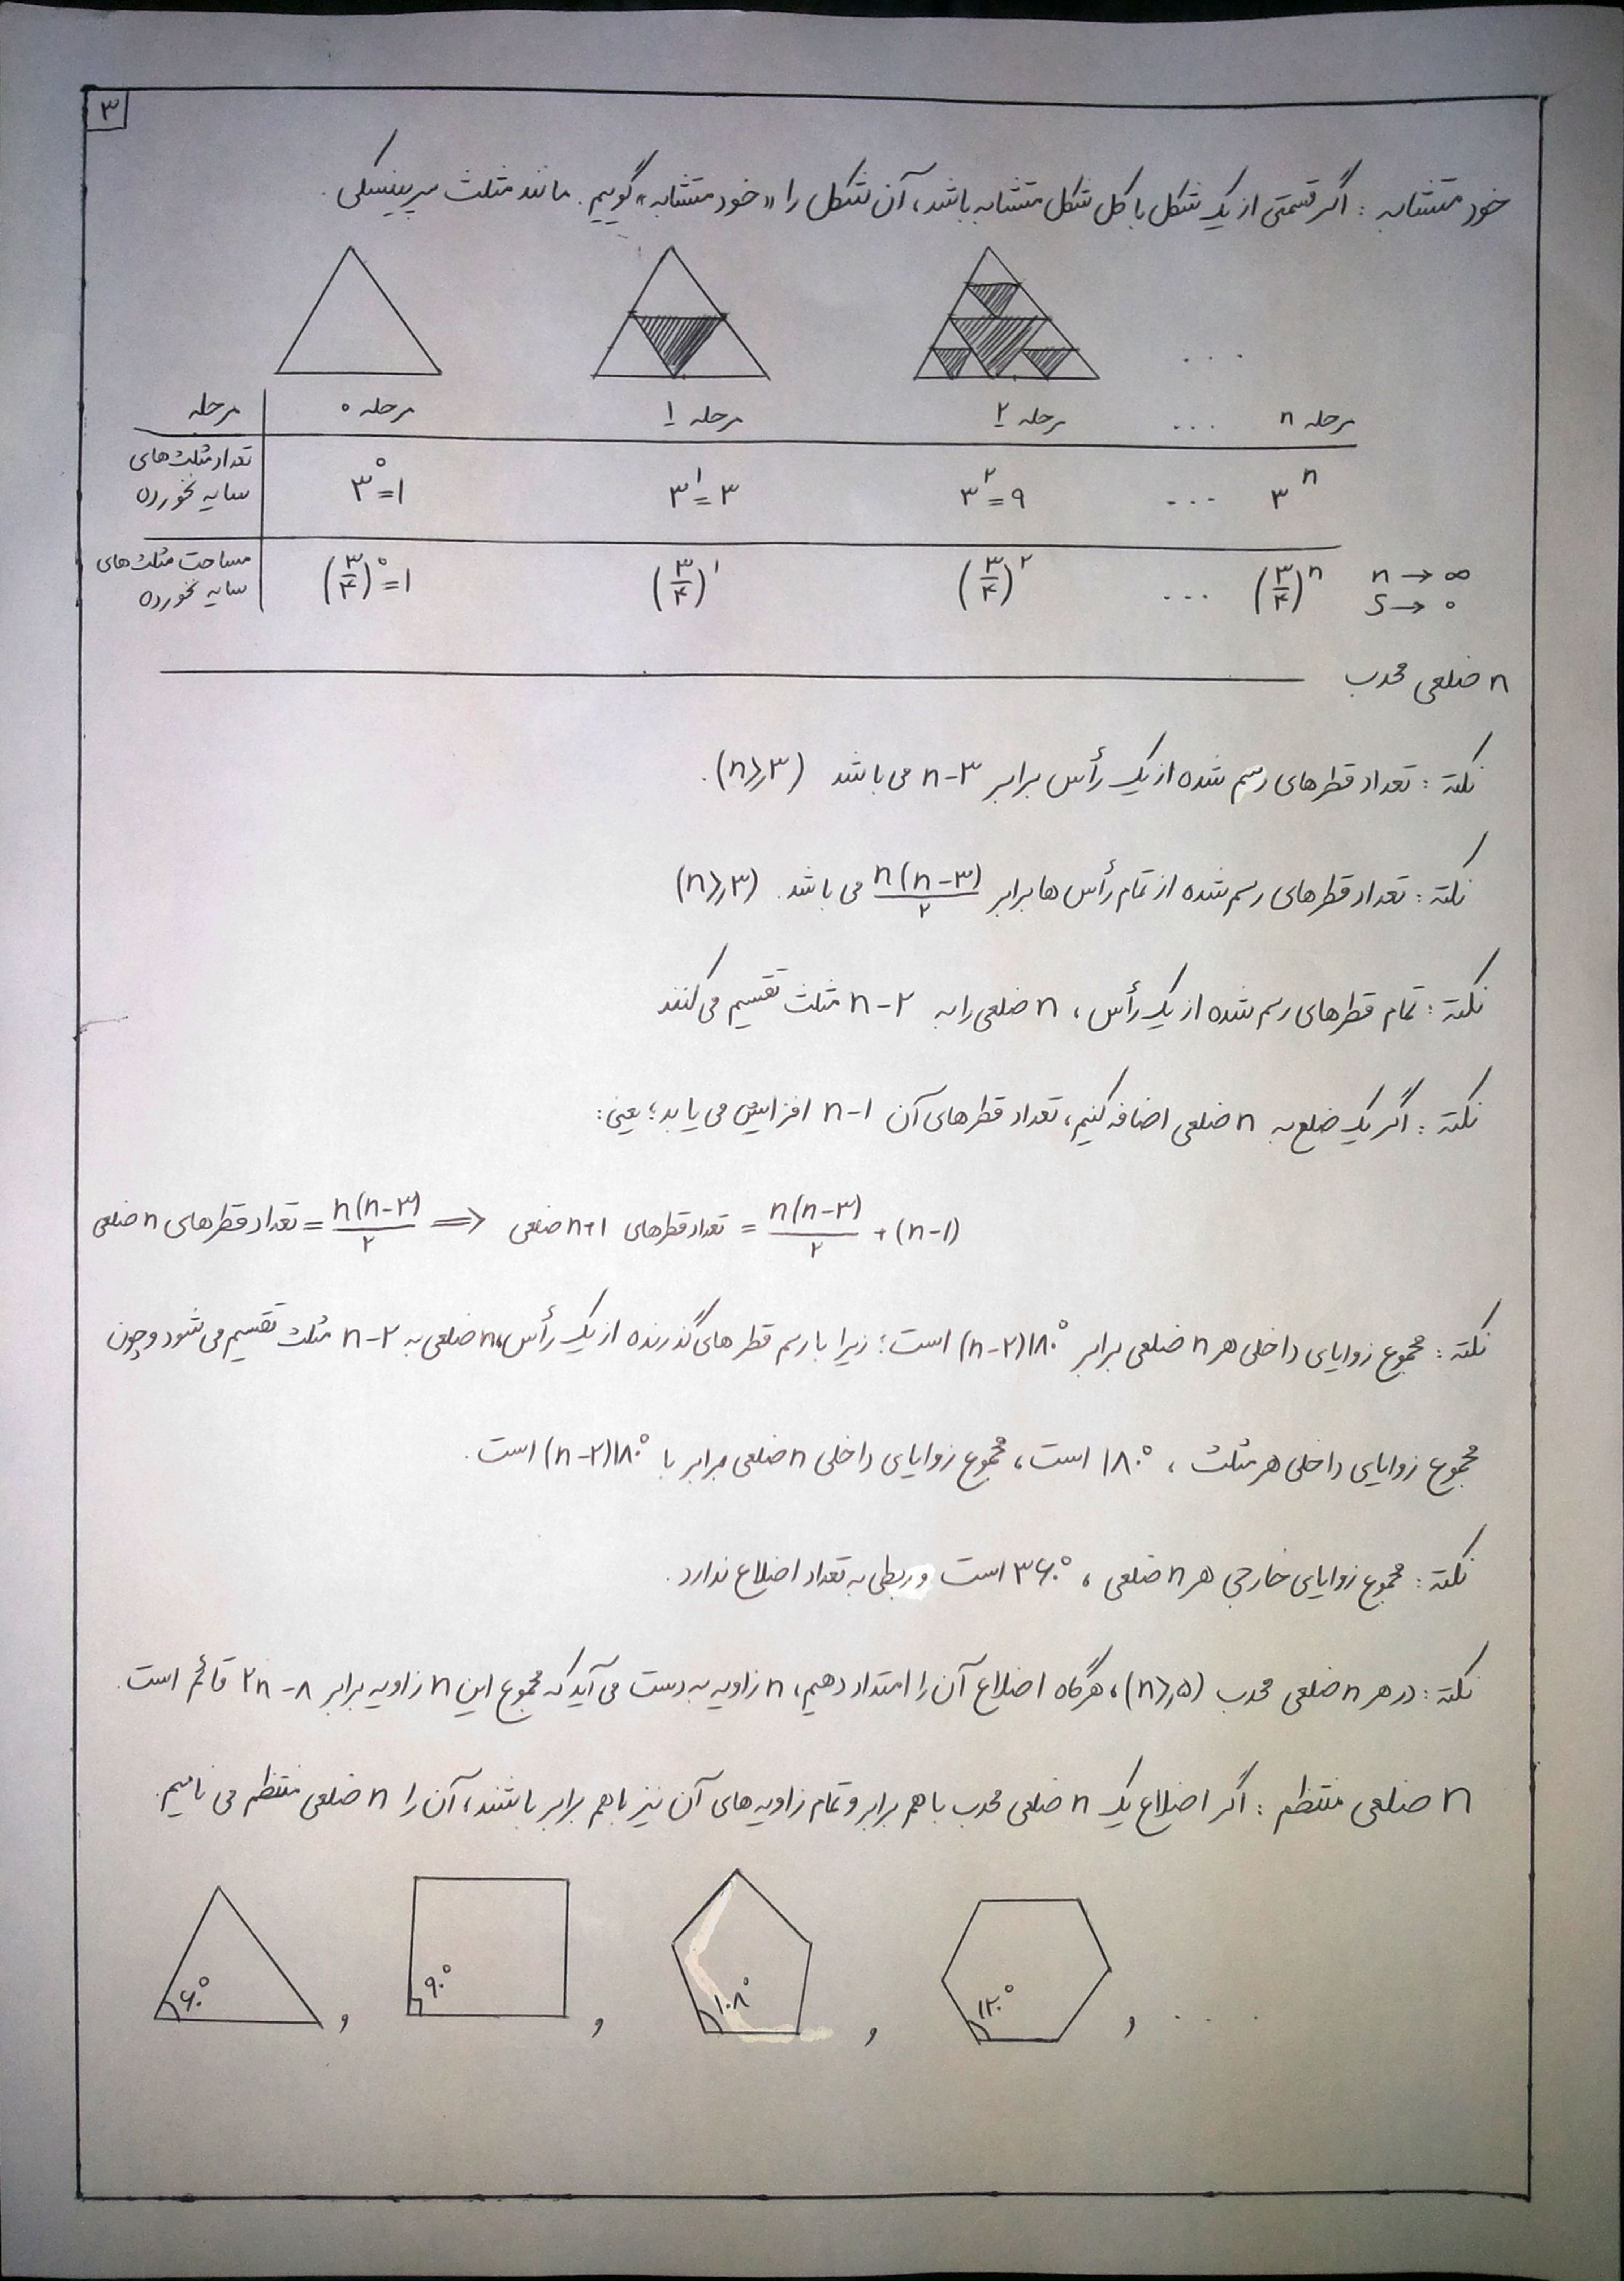 ۳
خود متشابه : اگر قسمتی از یک شکل با کل شکل متشابه باشد، آن شکل را «خود متشابه» گوییم. مانند مثلث سرپینسکی.
مرحله | مرحله ۰ | مرحله ۱ | مرحله ۲ | ... | مرحله n
تعداد مثلث‌های سایه نخورده | ۳^۰=۱ | ۳^۱=۳ | ۳^۲=۹ | ... | ۳^n
مساحت مثلث‌های سایه نخورده | (۳/۴)^۰=۱ | (۳/۴)^۱ | (۳/۴)^۲ | ... | (۳/۴)^n | n → ∞ S → ۰
n ضلعی محدب
نکته : تعداد قطرهای رسم شده از یک رأس برابر n-۳ می باشد (n⩾۳).
نکته : تعداد قطرهای رسم شده از تمام رأس ها برابر n(n-۳)/۲ می باشد. (n⩾۳)
نکته : تمام قطرهای رسم شده از یک رأس، n ضلعی را به n-۲ مثلث تقسیم می کنند
نکته : اگر یک ضلع به n ضلعی اضافه کنیم، تعداد قطرهای آن n-۱ افزایش می یابد؛ یعنی:
تعداد قطرهای n ضلعی = n(n-۳)/۲ ⟹ تعداد قطرهای n+۱ ضلعی = n(n-۳)/۲ + (n-۱)
نکته : مجموع زوایای داخلی هر n ضلعی برابر (n-۲)۱۸۰° است؛ زیرا با رسم قطرهای گذرنده از یک رأس، n ضلعی به n-۲ مثلث تقسیم می شود و چون
مجموع زوایای داخلی هر مثلث، ۱۸۰° است، مجموع زوایای داخلی n ضلعی برابر با (n-۲)۱۸۰° است.
نکته : مجموع زوایای خارجی هر n ضلعی، ۳۶۰° است و ربطی به تعداد اضلاع ندارد.
نکته : در هر n ضلعی محدب (n⩾۵)، هرگاه اضلاع آن را امتداد دهیم، n زاویه به دست می آید که مجموع این n زاویه برابر ۲n-۸ قائمه است.
n ضلعی منتظم : اگر اضلاع یک n ضلعی محدب با هم برابر و تمام زاویه های آن نیز با هم برابر باشند، آن را n ضلعی منتظم می نامیم.
۶۰° , ۹۰° , ۱۰۸° , ۱۲۰° , ....